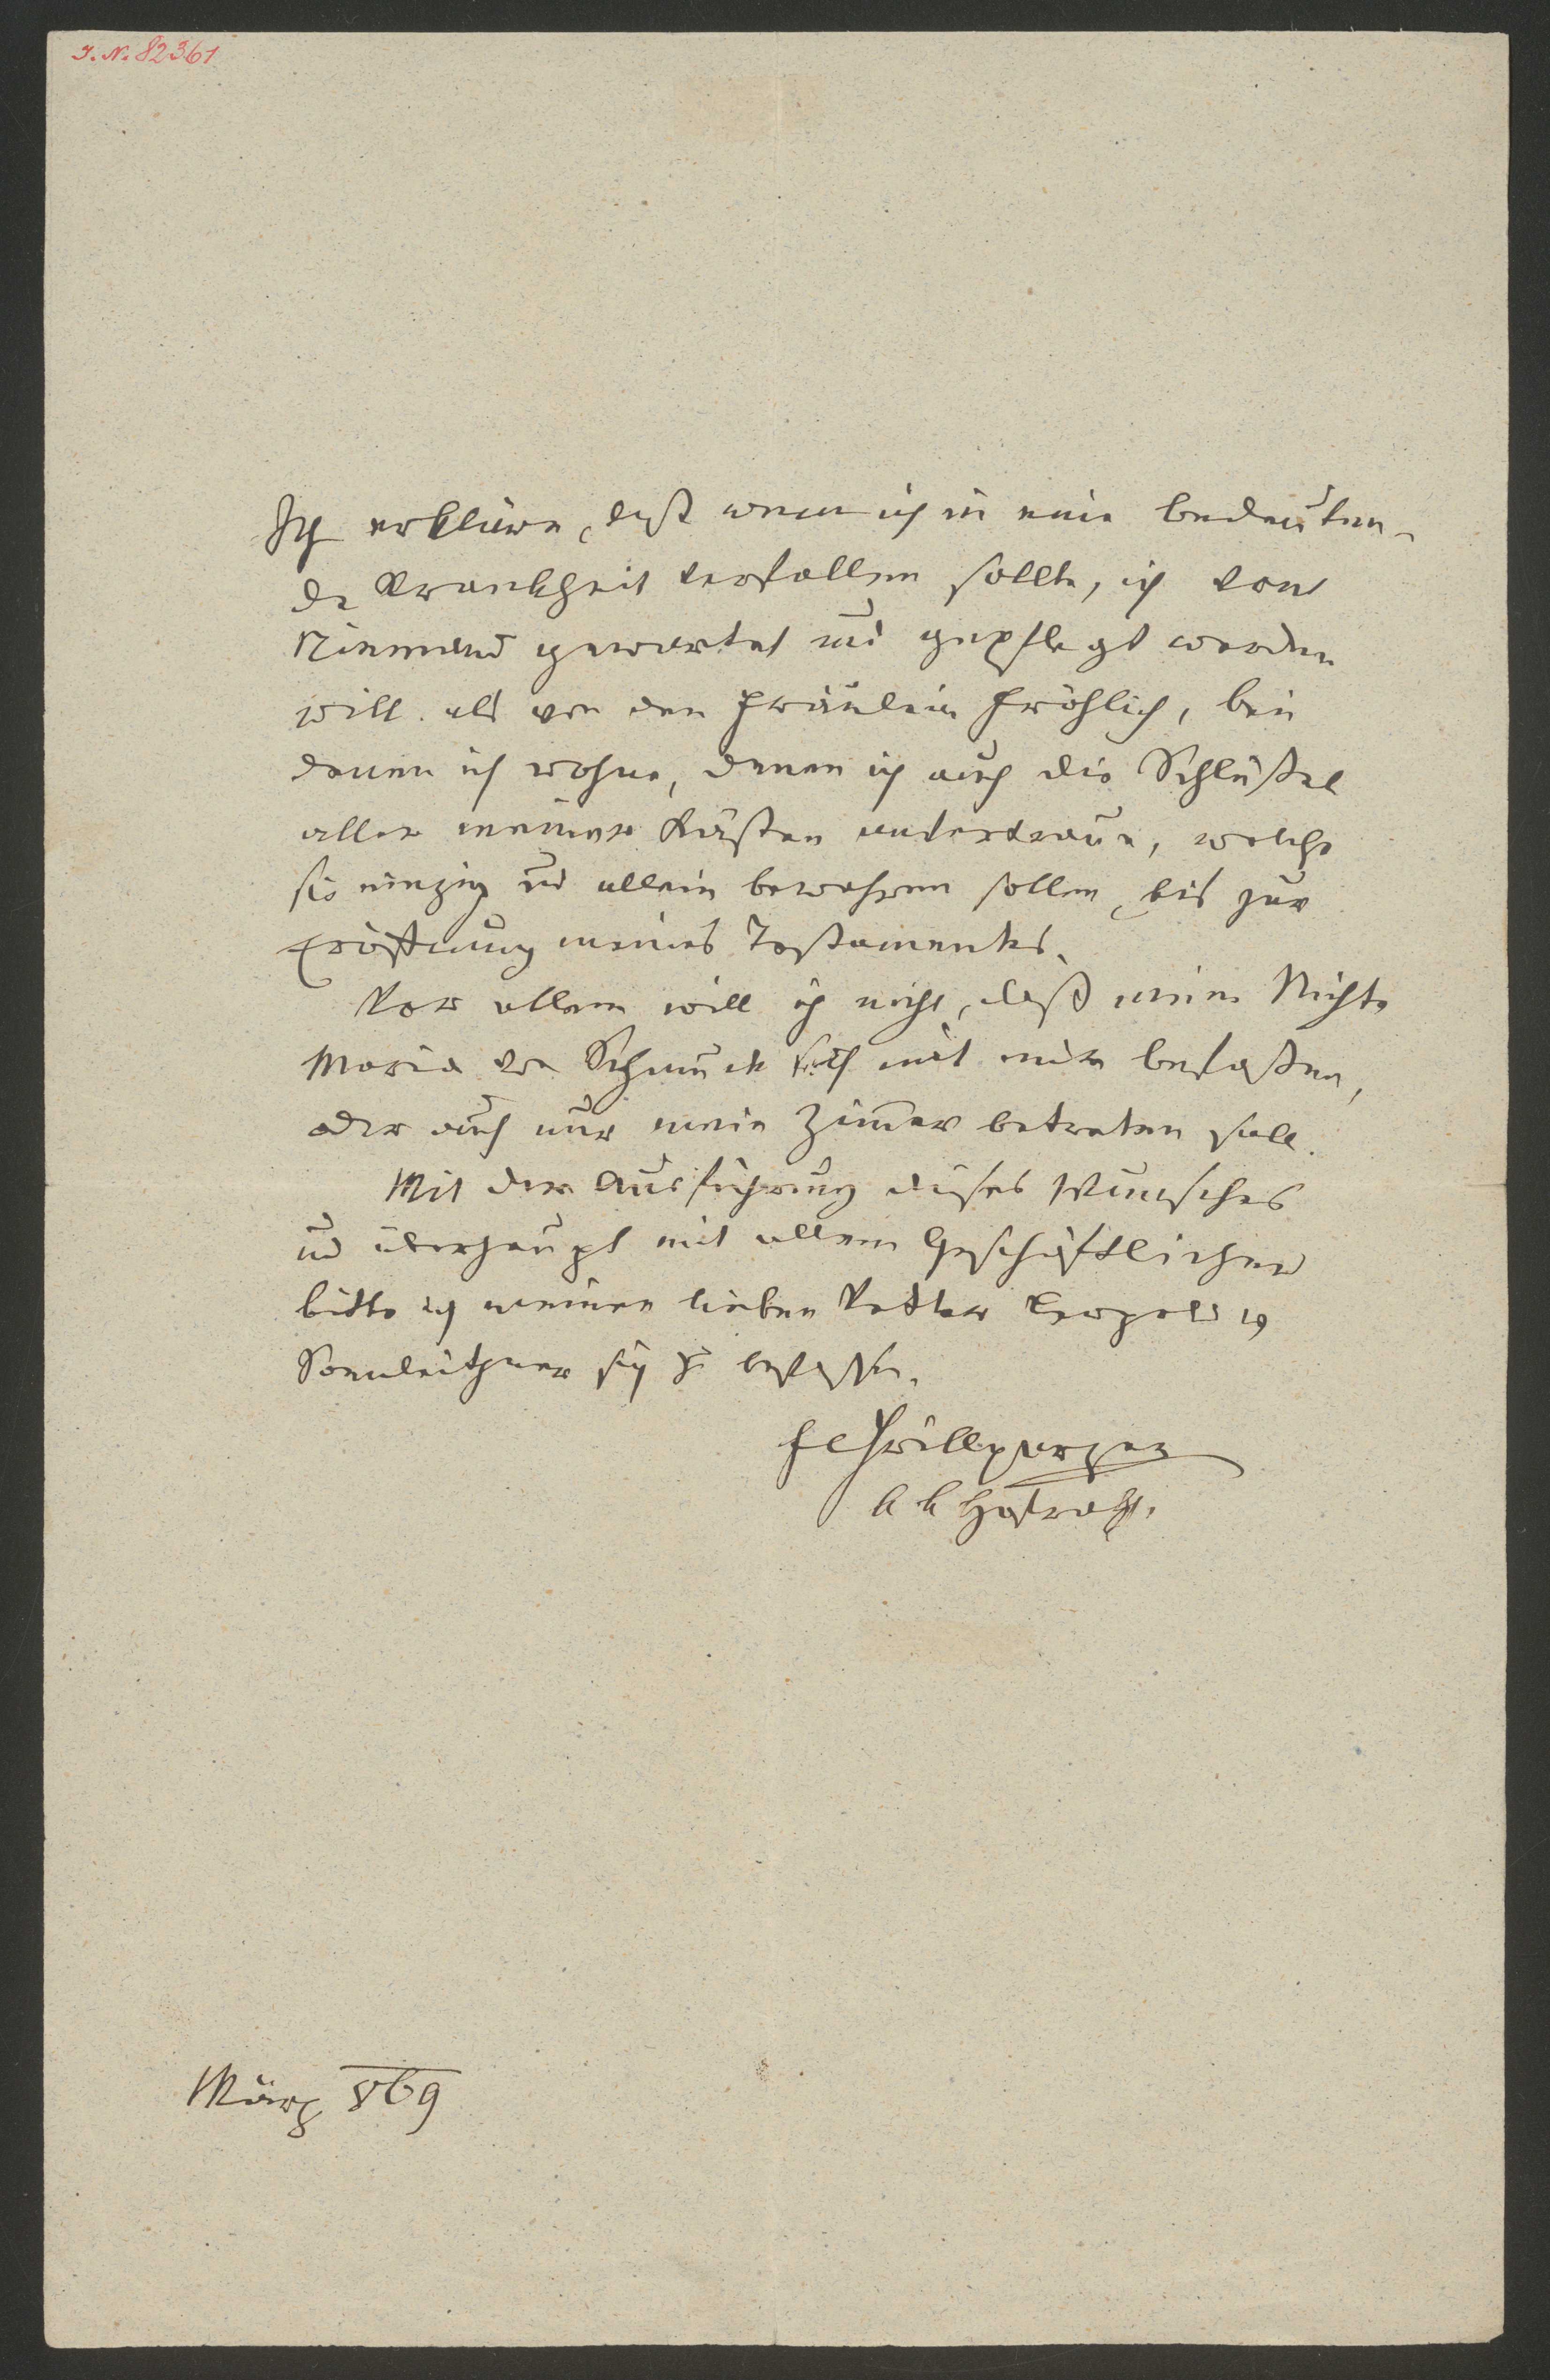 I. N. 82361
Ich erkläre, daß wenn ich in eine bedeuten-
de Krankheit verfallen sollte, ich von
Niemand gewartet und gepflegt werden
will als von den Fräulein Fröhlich, bei
denen ich wohne, denen ich auch die Schlüßel
aller meiner Kästen anvertraue, welche
sie einzig und allein bewahren sollen, bis zur
Eröffnung meines Testamentes.
Vor allem will ich nicht, daß meine Nichte
Maria von Schmuck sich mit mir befaßen,
oder auch nur mein Zimmer betreten soll.
Mit der Ausführung dieses Wunsches
und überhaupt mit allem Geschäftlichen
bitte ich meinen lieben Vetter Leopold
Sonnleithner sich zu befassen.
Grillparzer
k k Hofrath.
März 869